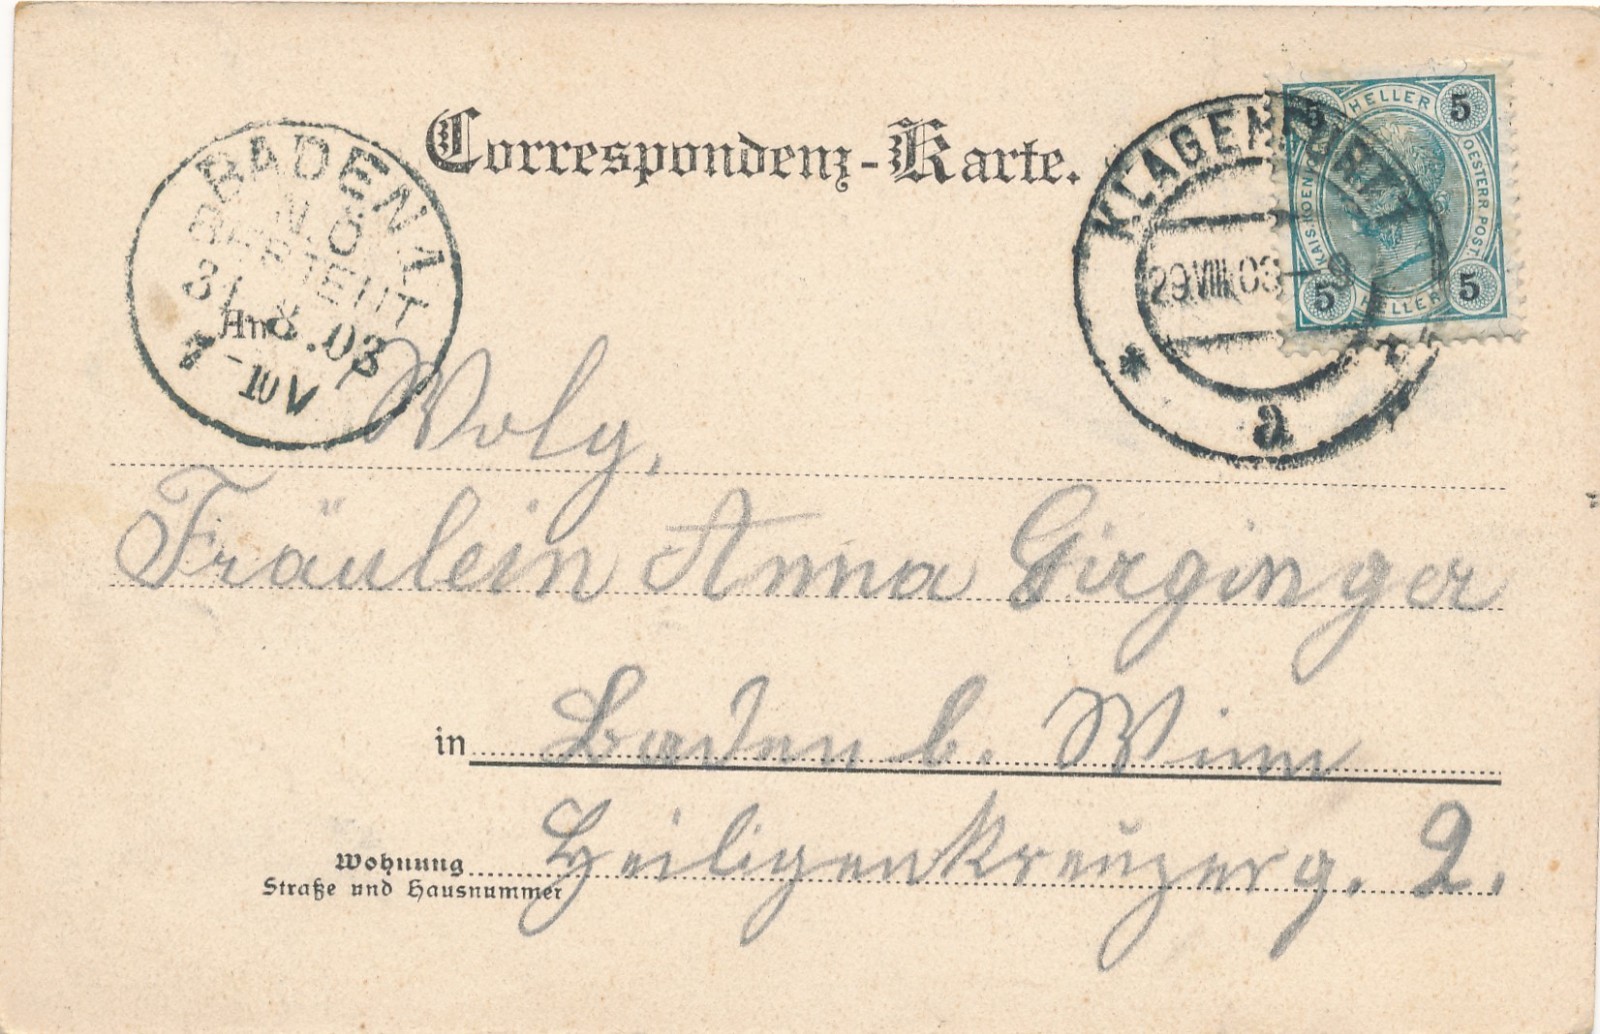 Correspondenz-Karte.
BADEN 1
N.Ö.
BESTELLT
31.8.03
7-10V
KLAGENFURT
29.VIII.03-9
a
5 HELLER 5
KAIS. KOENIGL. OESTERR. POST
5 HELLER 5
An
Wolg.
Fräulein Anna Girginger
in Baden b. Wien
Wohnung Heiligenkreuzerg. 2.
Straße und Hausnummer